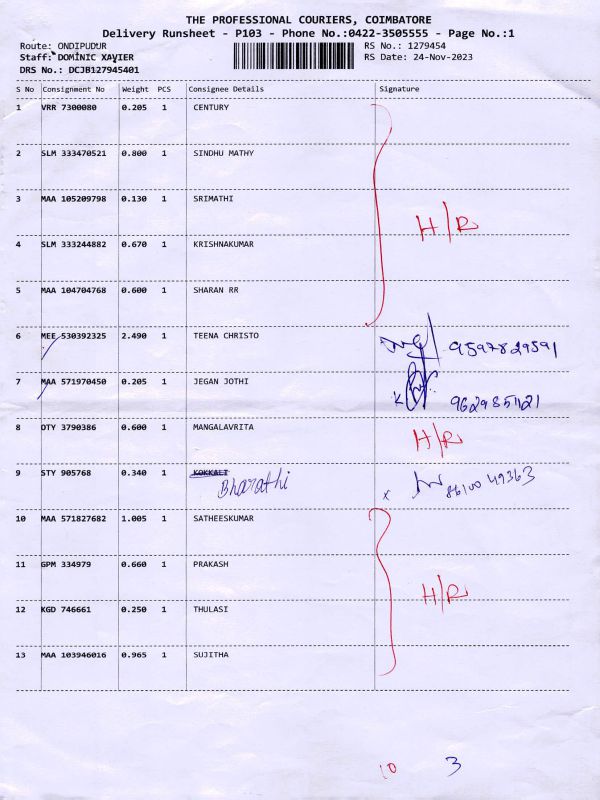 THE PROFESSIONAL COURIERS, COIMBATORE
Delivery Runsheet - P103 - Phone No.:0422-3505555 - Page No.:1
Route: ONDIPUDUR RS No.: 1279454
Staff: DOMINIC XAVIER RS Date: 24-Nov-2023
DRS No.: DCJB127945401
S No Consignment No Weight PCS Consignee Details Signature
1 VRR 7300080 0.205 1 CENTURY
2 SLM 333470521 0.800 1 SINDHU MATHY
3 MAA 105209798 0.130 1 SRIMATHI
H/R
4 SLM 333244882 0.670 1 KRISHNAKUMAR
5 MAA 104704768 0.600 1 SHARAN RR
6 MEE 530392325 2.490 1 TEENA CHRISTO 9597829591
7 MAA 571970450 0.205 1 JEGAN JOTHI
8 OTY 3790386 0.600 1 MANGALAVRITA H/R
9 STY 905768 0.340 1 KOKKALI x 8610049363
Bharathi
10 MAA 571827682 1.005 1 SATHEESKUMAR
11 GPM 334979 0.660 1 PRAKASH
H/R
12 KGD 746661 0.250 1 THULASI
13 MAA 103946016 0.965 1 SUJITHA
10 3